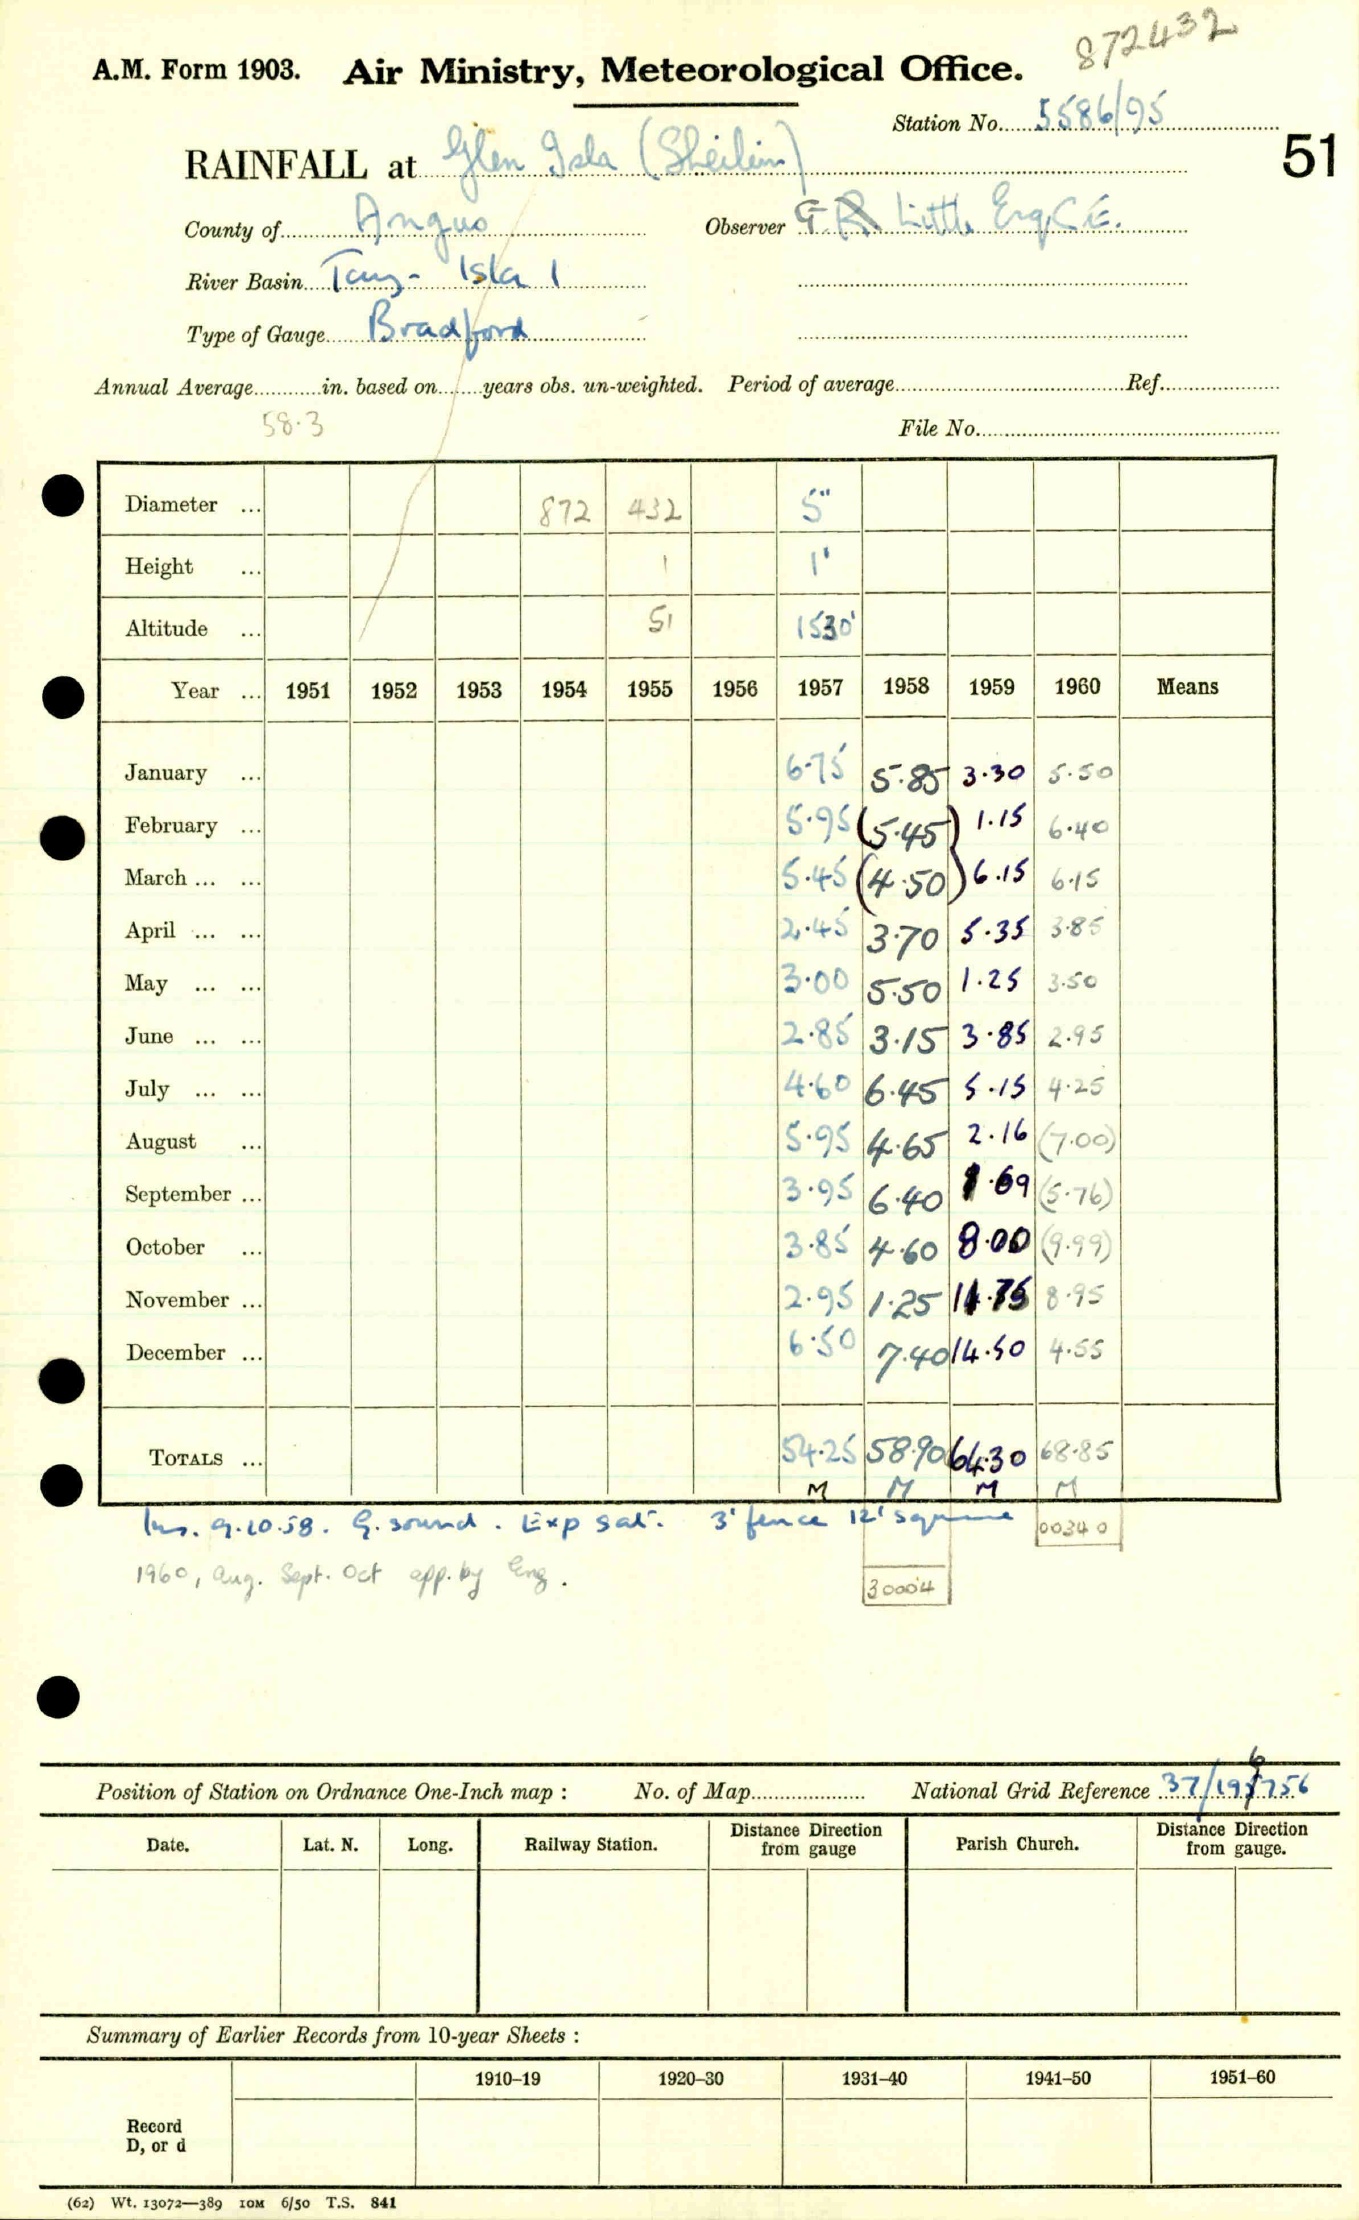 872432
A.M. Form 1903. Air Ministry, Meteorological Office.
Station No. 5586/95
51
RAINFALL at Glen Isla (Sheilin)
County of Angus Observer G. R Little Esq, C.E.
River Basin Tay- Isla 1
Type of Gauge Bradford
Annual Average in. based on years obs. un-weighted. Period of average Ref.
58.3
File No.
Diameter ... 872 432 5"
Height ... 1 1'
Altitude ... 51 1530'
Year ... 1951 1952 1953 1954 1955 1956 1957 1958 1959 1960 Means
January ... 6.75 5.85 3.30 5.50
February ... 5.95 (5.45) 1.15 6.40
March ... ... 5.45 (4.50) 6.15 6.15
April ... ... 2.45 3.70 5.35 3.85
May ... ... 3.00 5.50 1.25 3.50
June ... ... 2.85 3.15 3.85 2.95
July ... ... 4.60 6.45 5.15 4.25
August ... 5.95 4.65 2.16 (7.00)
September ... 3.95 6.40 1.69 (5.76)
October ... 3.85 4.60 8.00 (9.99)
November ... 2.95 1.25 11.75 8.95
December ... 6.50 7.40 14.50 4.55
TOTALS ... 54.25 58.90 64.30 68.85
M M M M
Ins. 9.10.58. G. sound. Exp sat. 3' fence 12' square 00340
1960, Aug. Sept. Oct app. by Eng. 30004
Position of Station on Ordnance One-Inch map : No. of Map National Grid Reference 37/196756
Date. Lat. N. Long. Railway Station. Distance Direction from gauge Parish Church. Distance Direction from gauge.
Summary of Earlier Records from 10-year Sheets :
1910–19 1920–30 1931–40 1941–50 1951–60
Record
D, or d
(62) Wt. 13072—389 10M 6/50 T.S. 841